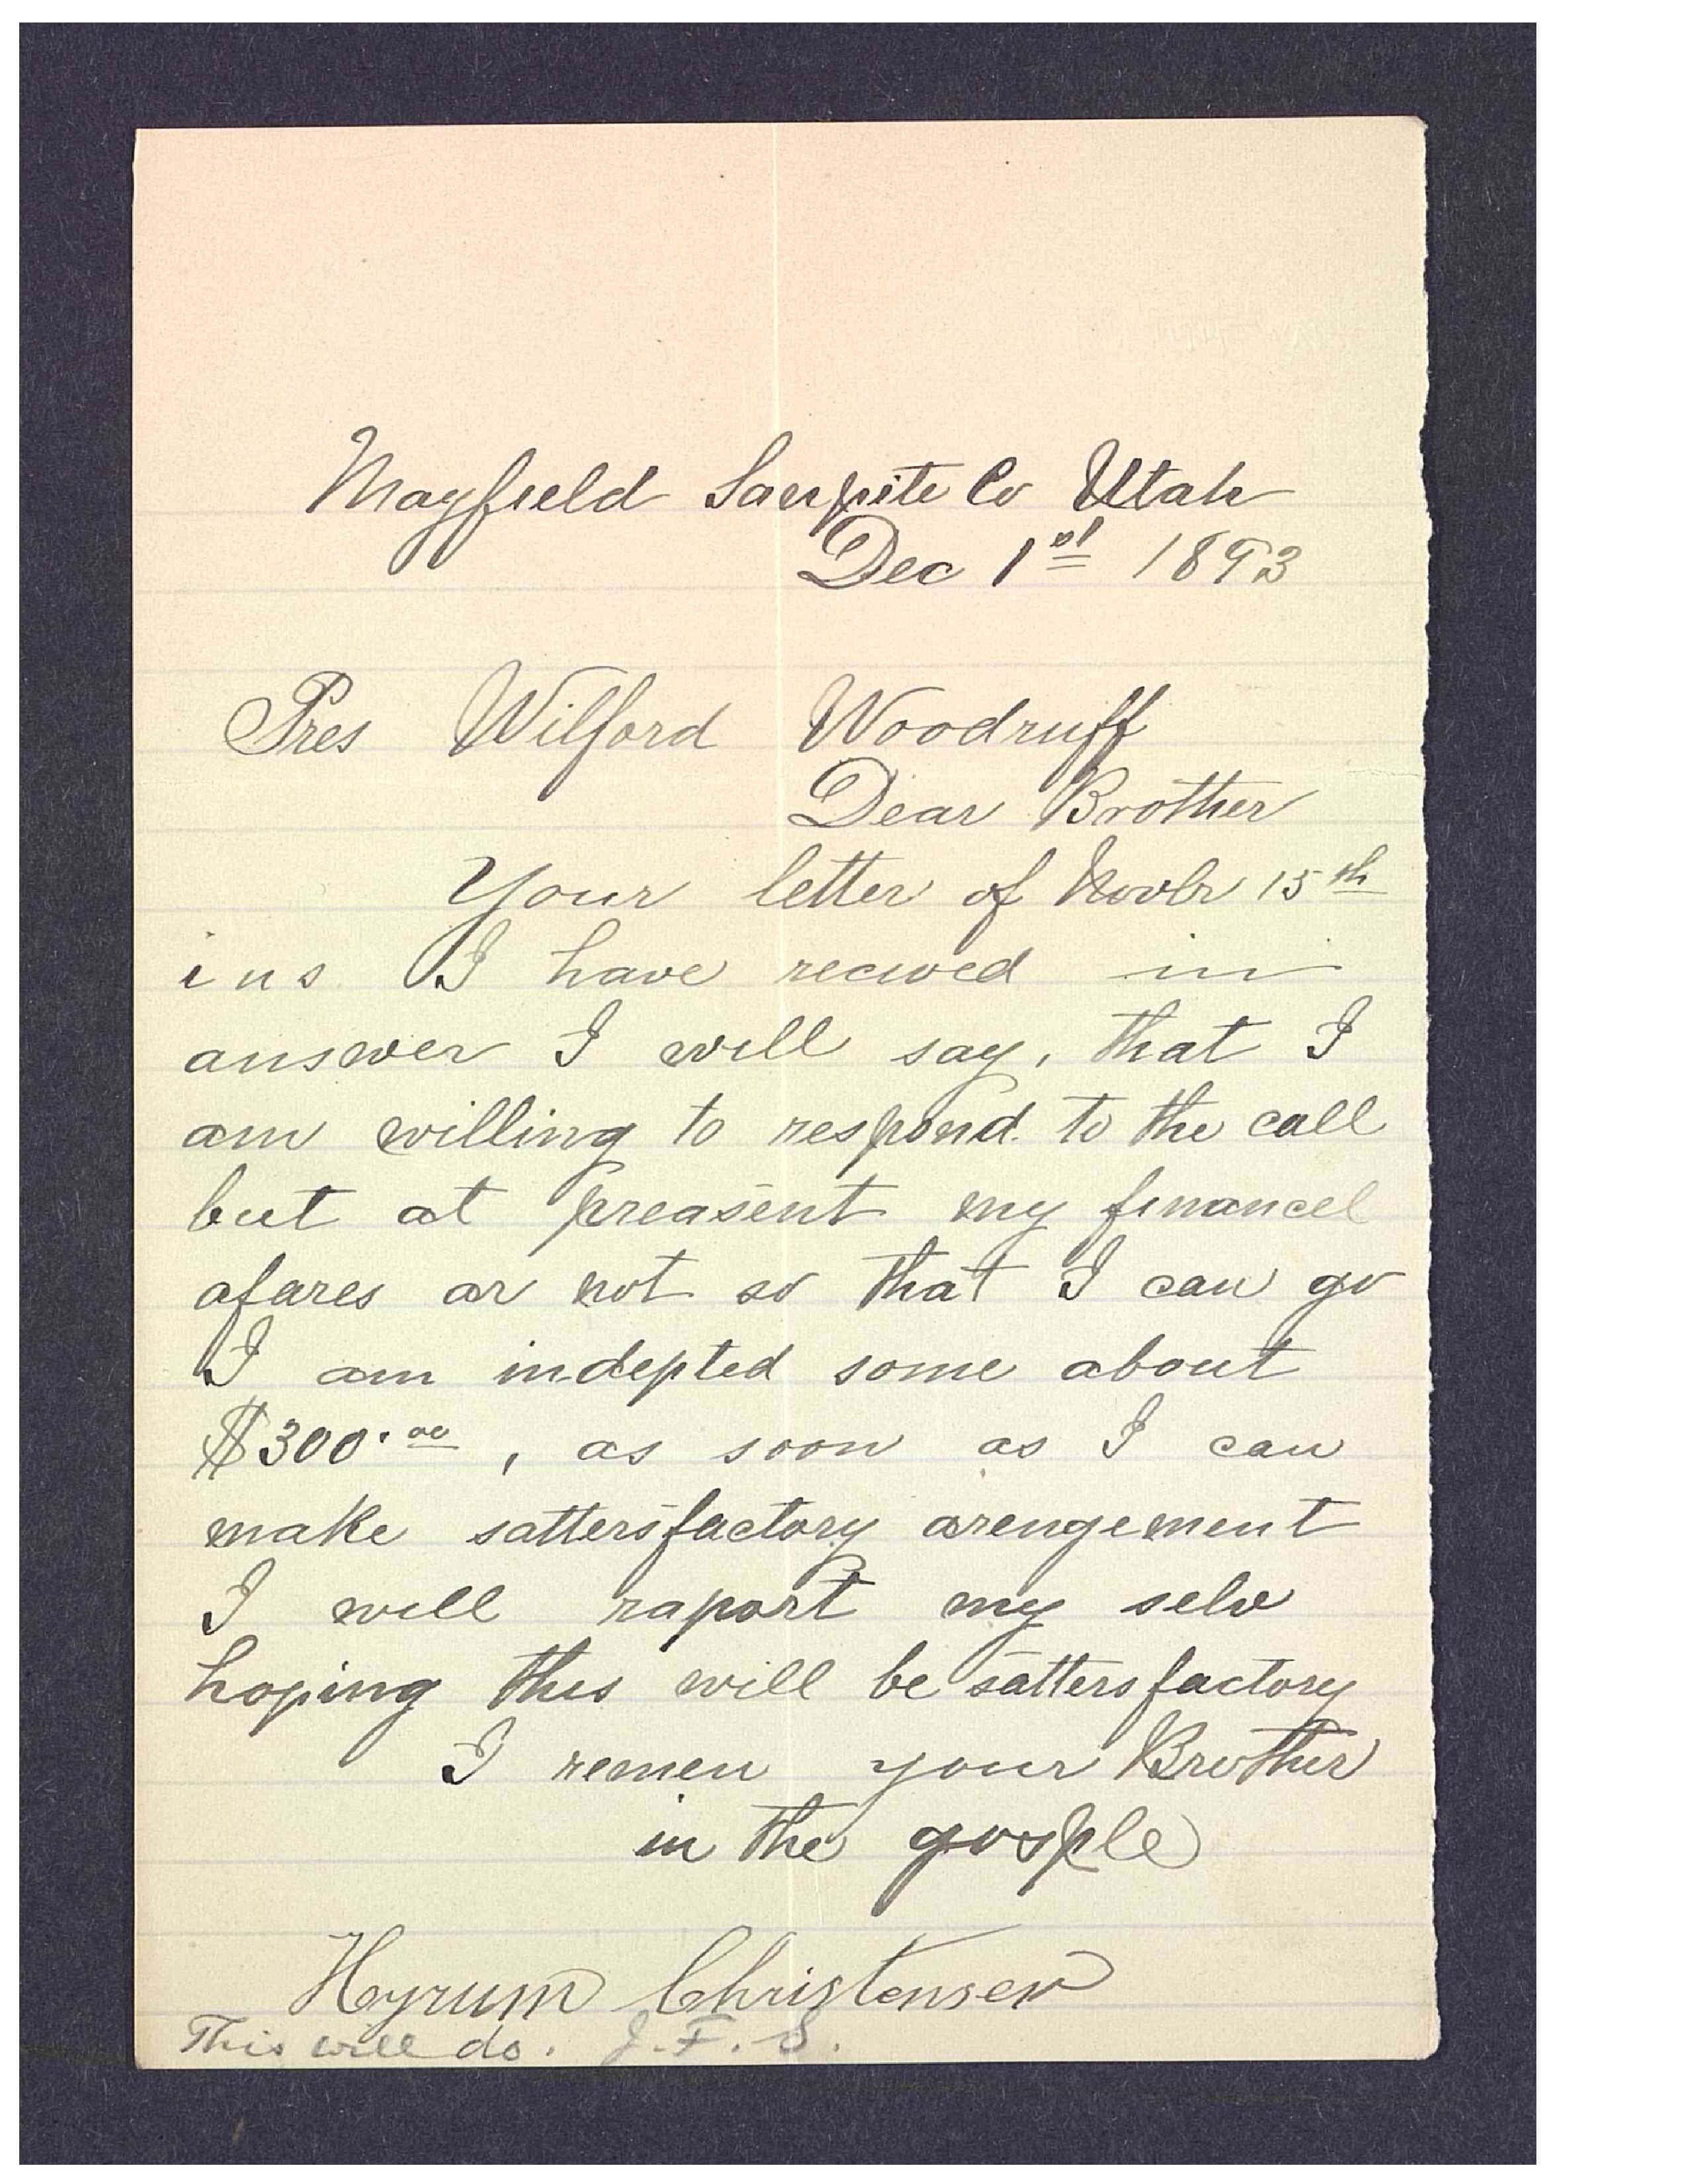 Mayfield Sanpite Co Utah
Dec 1st 1893
Pres Wilford Woodruff
Dear Brother
Your letter of Novbr 15th
ins I have recived in
answer I will say, that I
am willing to respond to the call
but at preasent my financel
afares ar not so that I can go
I am indepted some about
$300.00, as soon as I can
make sattersfactory arengement
I will raport my selv
hoping this will be sattersfactory
I remen your Brother
in the gosple
Hyrum Christensen
This will do. J.F.S.